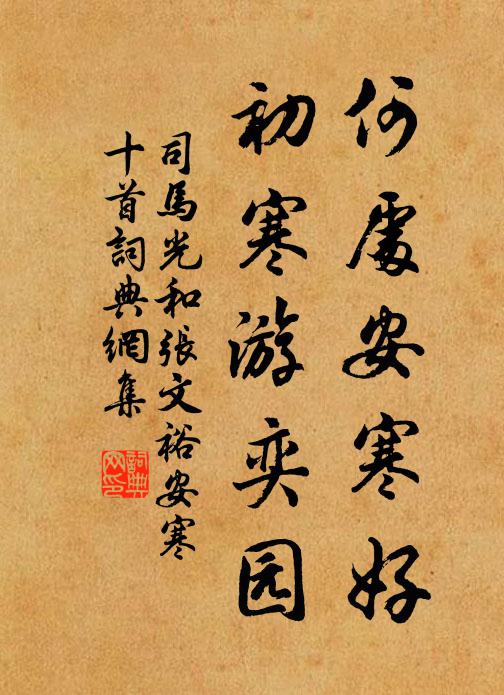 何處安寒好
初寒游奕园
司馬光和張文裕安寒
十首詞典網集
詞典
网印